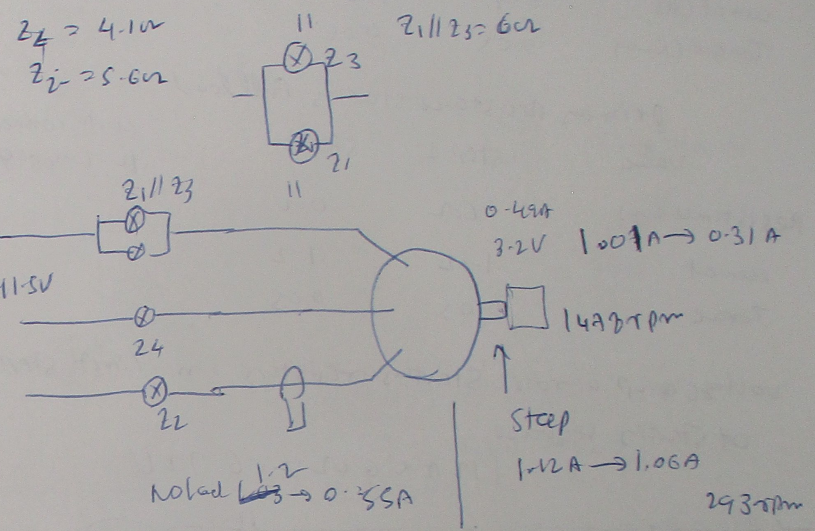 Z4 = 4.1Ω
Z2 = 5.6Ω
11
Z3
Z1
11
Z1//Z3 = 6Ω
Z1//Z3
11.5V
Z4
Z2
0.49A
3.2V
1.01A → 0.31A
1478rpm
Steep
1.12A → 1.06A
Noload 1.2 → 0.55A
293rpm